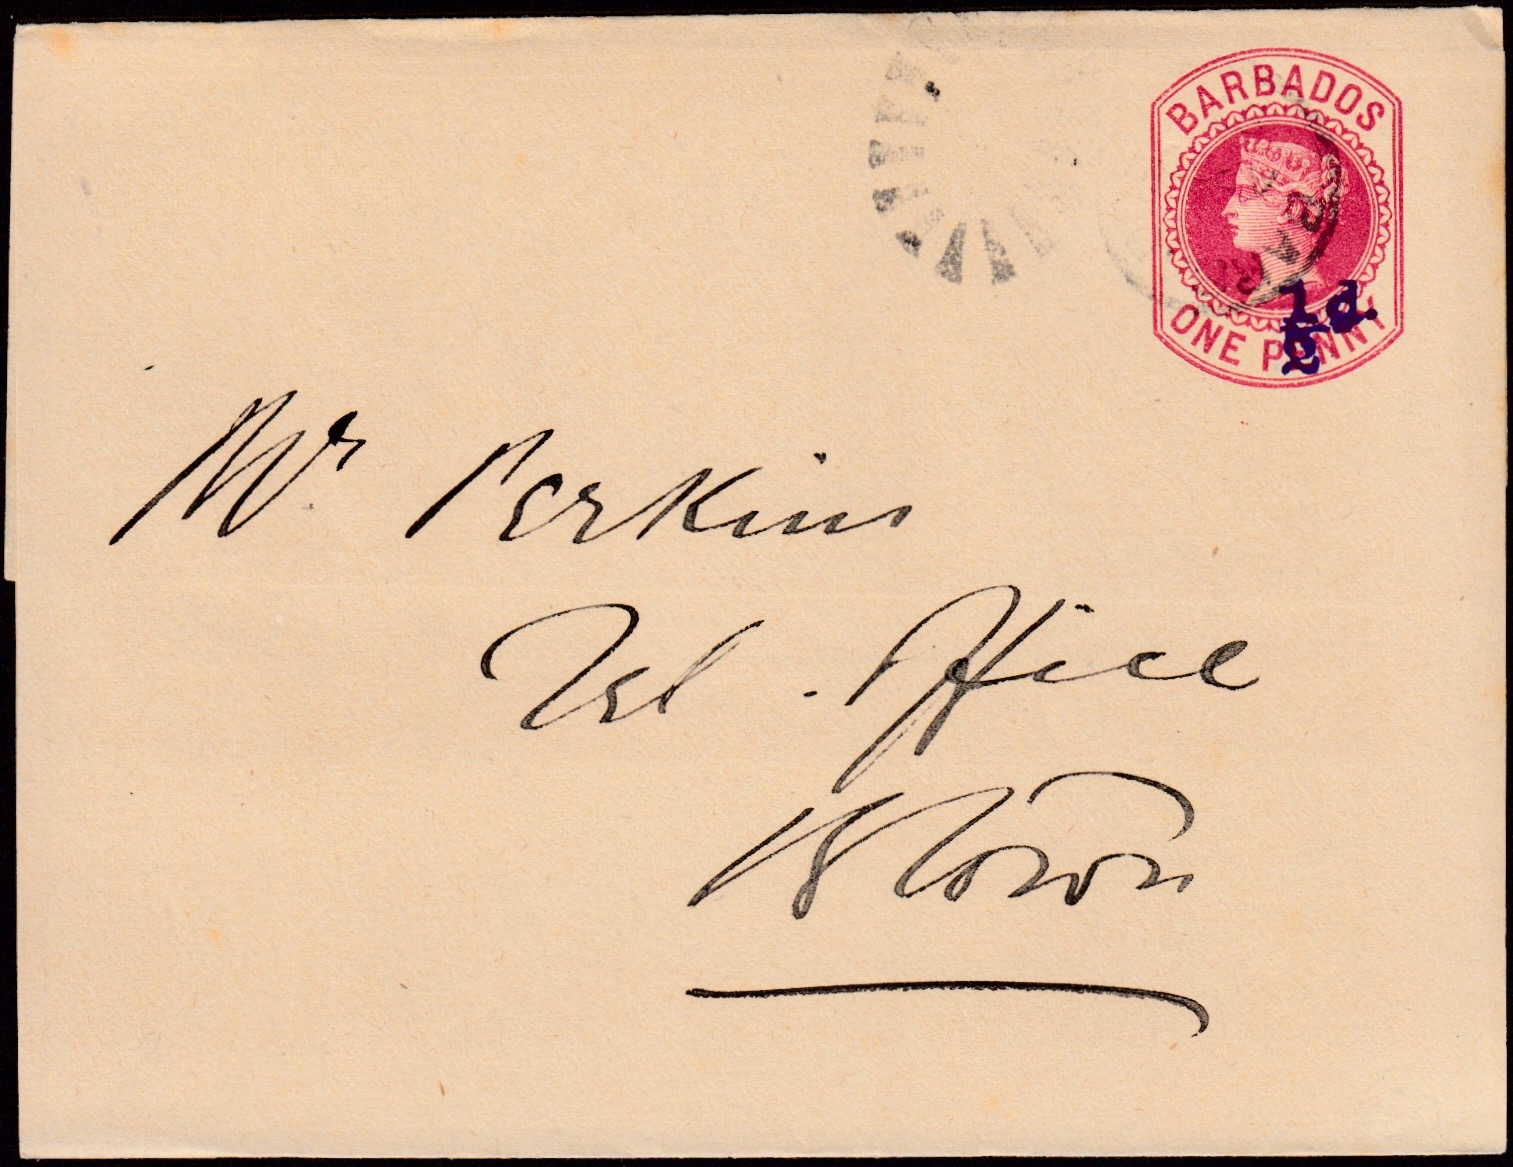 BARBADOS
ONE PENNY
½d.
Mr Perkins
Tel. Office
BTown